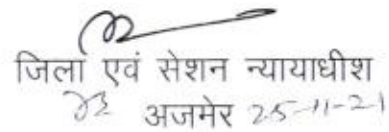 जिला एवं सेशन न्यायाधीश
अजमेर 25-11-21